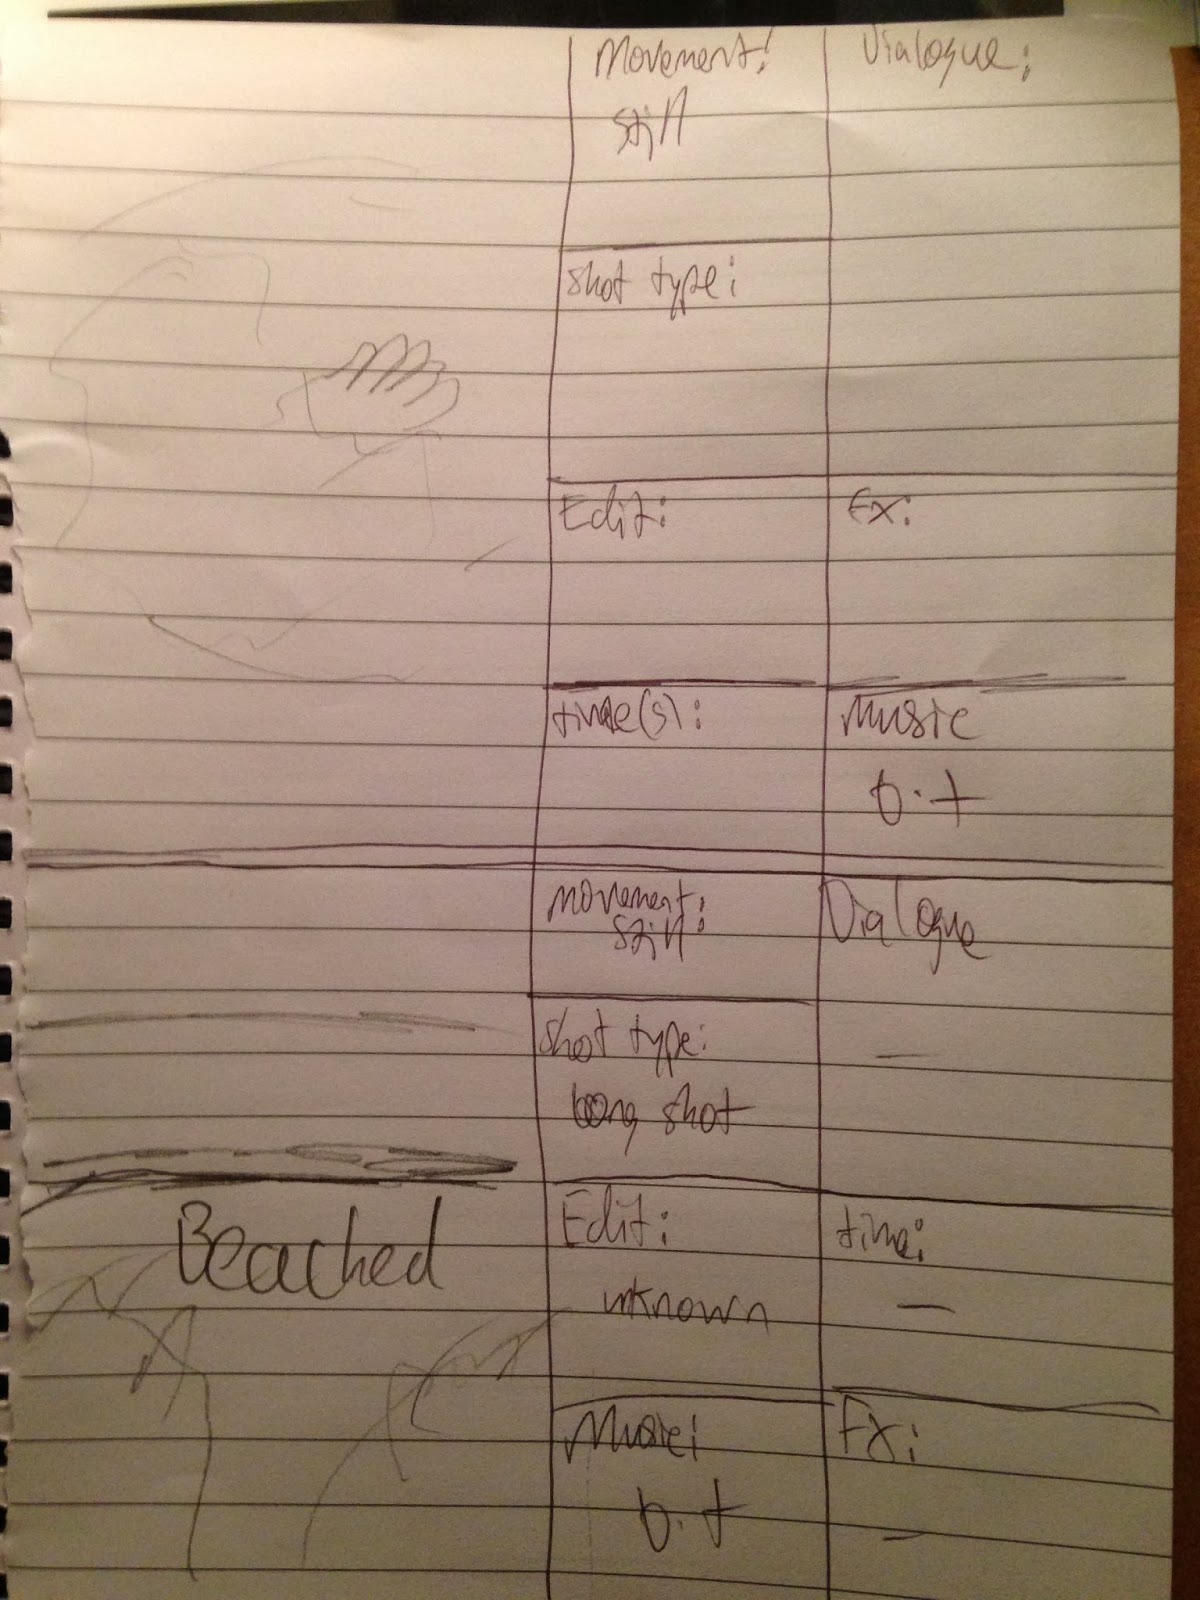 Movement:
still
Dialogue:
shot type:
Edit:
Fx:
time(s):
Music
b.t
Movement:
still
Dialogue
shot type:
—
long shot
Beached
Edit:
unknown
time:
—
Music:
b.t
Fx:
—